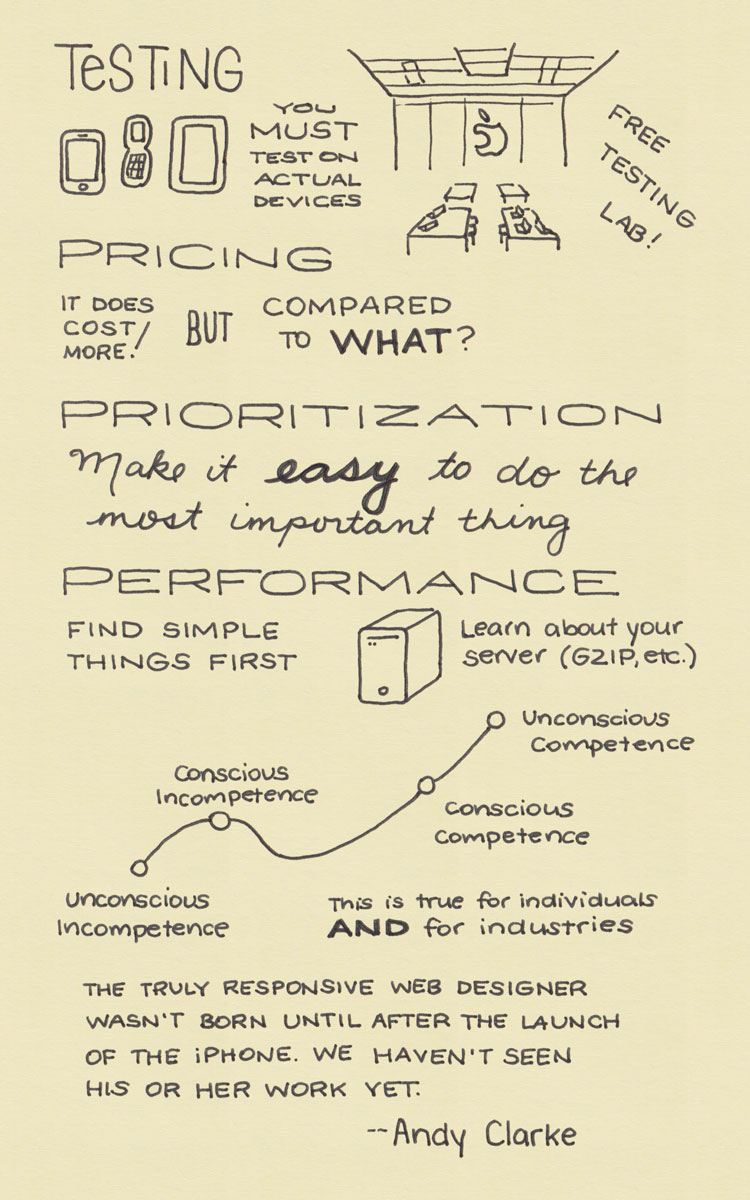 TESTING
YOU
MUST
TEST ON
ACTUAL
DEVICES
FREE
TESTING
LAB!
PRICING
IT DOES
COST
MORE!
BUT
COMPARED
TO WHAT?
PRIORITIZATION
Make it easy to do the
most important thing
PERFORMANCE
FIND SIMPLE
THINGS FIRST
Learn about your
server (GZIP, etc.)
Unconscious
Competence
Conscious
Incompetence
Conscious
Competence
Unconscious
Incompetence
This is true for individuals
AND for industries
THE TRULY RESPONSIVE WEB DESIGNER
WASN'T BORN UNTIL AFTER THE LAUNCH
OF THE iPHONE. WE HAVEN'T SEEN
HIS OR HER WORK YET.
--Andy Clarke